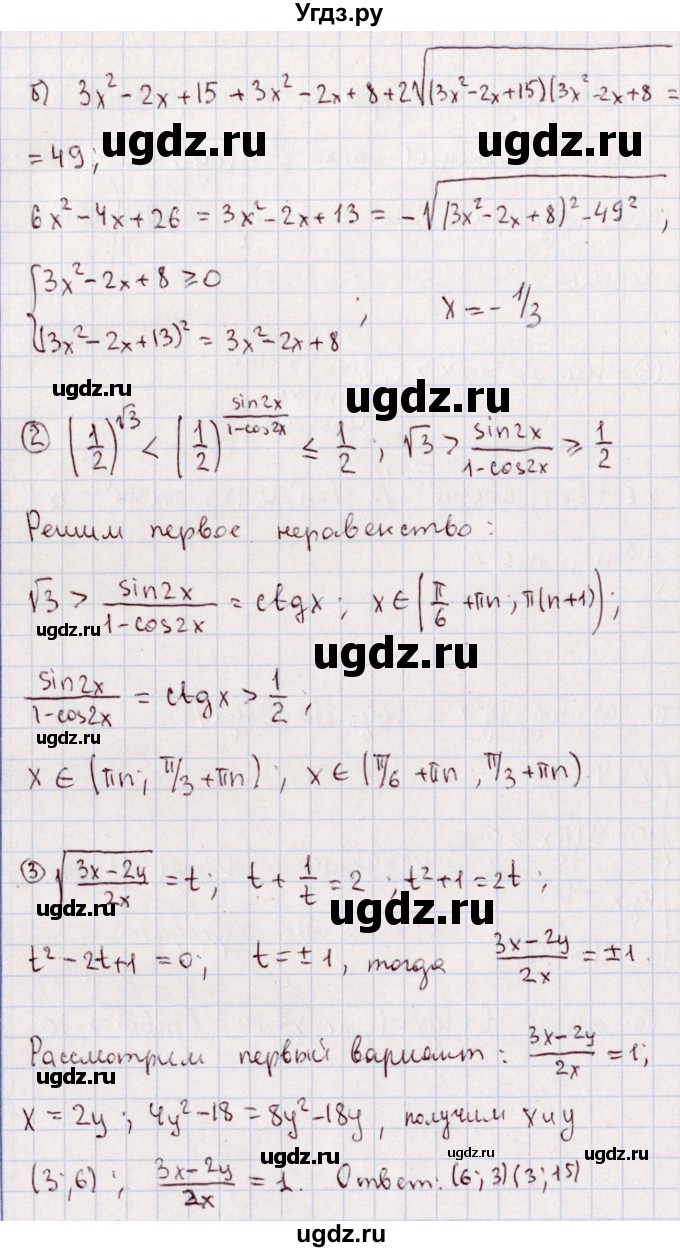 Угдз.ру
б) 3x² - 2x + 15 + 3x² - 2x + 8 + 2√((3x² - 2x + 15)(3x² - 2x + 8 =
= 49;
ugdz.ru
ugdz.ru
6x² - 4x + 26 = 3x² - 2x + 13 = -√((3x² - 2x + 8)² - 49²;
{3x² - 2x + 8 ≥ 0
(3x² - 2x + 13)² = 3x² - 2x + 8 ; x = - 1/3
ugdz.ru
ugdz.ru
② (1/2)^√3 < (1/2)^(sin2x/(1-cos2x)) ≤ 1/2 ; √3 > sin2x/(1-cos2x) ≥ 1/2
Решим первое неравенство:
√3 > sin2x/(1-cos2x) = ctgx; x ∈ (π/6 + πn; π(n+1));
ugdz.ru
ugdz.ru
sin2x/(1-cos2x) = ctgx > 1/2;
ugdz.ru
x ∈ (πn; π/3 + πn); x ∈ (π/6 + πn, π/3 + πn).
③ √((3x-2y)/2x) = t; t + 1/t = 2; t² + 1 = 2t;
ugdz.ru
ugdz.ru
t² - 2t + 1 = 0; t = ± 1, тогда (3x-2y)/2x = ± 1.
Рассмотрим первый вариант: (3x-2y)/2x = 1;
ugdz.ru
ugdz.ru
x = 2y; 4y² - 18 = 8y² - 18y, получим x и y
(3; 6); (3x-2y)/2x = 1. Ответ: (6; 3)(3; 15)
ugdz.ru
ugdz.ru
ugdz.ru